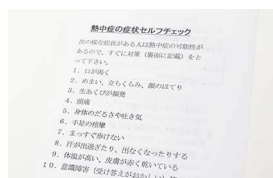 熱中症の症状セルフチェック
次の様な症状がある人は熱中症の可能性が
あるので、すぐに対策（裏面に記載）をと
って下さい。
1．口が渇く
2．めまい、立ちくらみ、顔のほてり
3．生あくびが頻発
4．頭痛
5．身体のだるさや吐き気
6．手足の痙攣
7．まっすぐ歩けない
8．汗が出過ぎたり、出なくなったりする
9．体温が高い、皮膚が赤く乾いている
10．意識障害（受け答えがおかしい